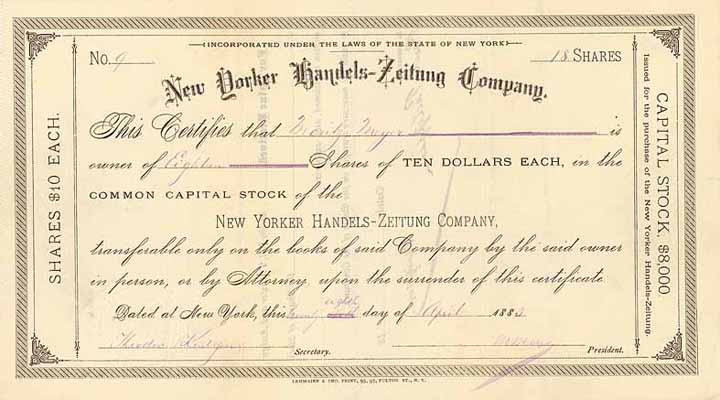 INCORPORATED UNDER THE LAWS OF THE STATE OF NEW YORK
No. 9 18 SHARES
New Yorker Handels-Zeitung Company.
This Certifies that Meyer is
owner of Eighteen Shares of TEN DOLLARS EACH, in the
COMMON CAPITAL STOCK of the
NEW YORKER HANDELS-ZEITUNG COMPANY,
transferable only on the books of said Company by the said owner
in person, or by Attorney, upon the surrender of this certificate
Dated at New York, this twenty eighth day of April 1883
Theodor
Secretary. President.
SHARES $10 EACH.
CAPITAL STOCK, $8,000.
Issued for the purchase of the New Yorker Handels-Zeitung.
LEHMAIER & BRO, PRINT, 95, 97, FULTON ST., N. Y.